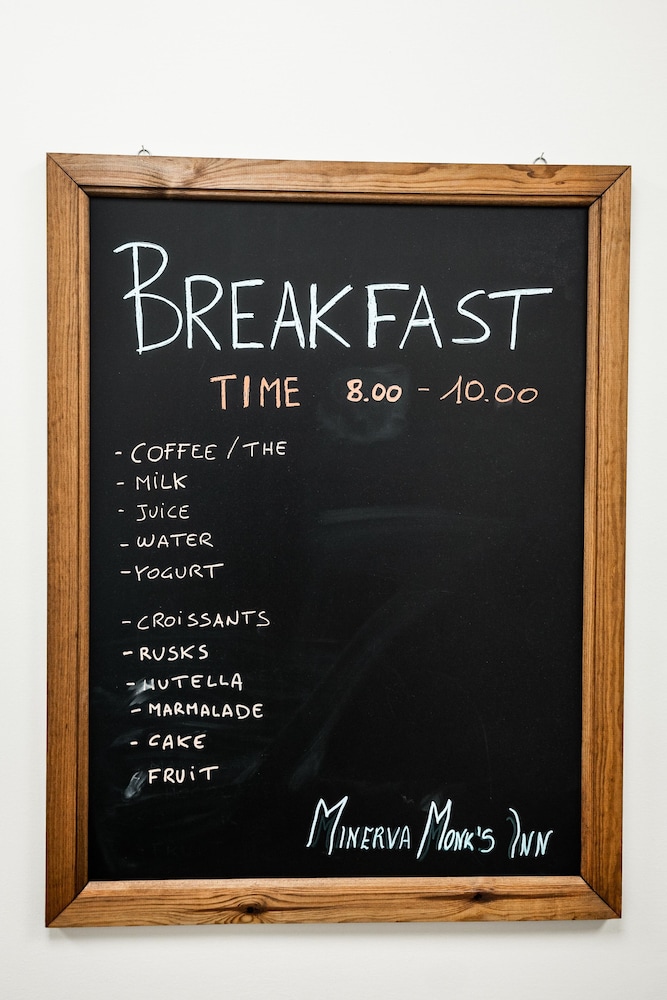 BREAKFAST
TIME 8.00 - 10.00
- COFFEE / THE
- MILK
- JUICE
- WATER
- YOGURT
- CROISSANTS
- RUSKS
- NUTELLA
- MARMALADE
- CAKE
FRUIT
MINERVA MONK'S INN